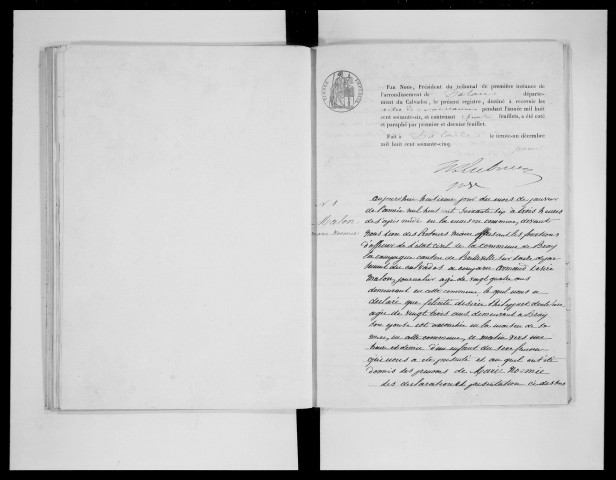 Par Nous, Président du tribunal de première instance de
l'arrondissement de Falaise départe-
ment du Calvados, le présent registre, destiné à recevoir les
actes de naissances pendant l'année mil huit
cent soixante-six, et contenant quatre feuillets, a été coté
et paraphé par premier et dernier feuillet.
Fait à Falaise le trente-un décembre
mil huit cent soixante-cinq.
N° 1
Malon
Marie Noémie
aujourd'hui huitieme jour du mois de janvier
de l'année mil huit cent soixante six a trois heures
de l'apres midi en la maison commune, devant
nous Léon des Rotours maire exerçant les fonctions
d'officier de l'état civil de la commune de Bray
la campagne canton de Bretteville sur Laize depar
tement du calvados a comparu Armand Désiré
Malon, journalier agé de vingt quatre ans
demeurant en cette commune le quel nous a
declaré que felicité desirée Philippart dentelière
agée de vingt trois ans demeurant a Bray
son épouse est accouchée en la maison de sa
mere, en cette commune, ce matin vers une
heure et demie d'un enfant du sexe feminin
qu'il nous a été presenté et au quel ont été
donnés les prenoms de Marie Noémie
les declaration et presentation ci dessus